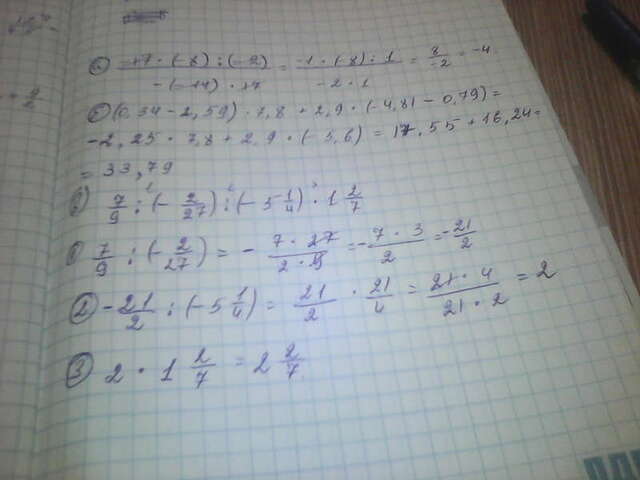 а) (-17 · (-8) : (-2)) / (-(-14) · 17) = (-1 · (-8) : 1) / (-2 · 1) = 8/-2 = -4
б) (0,34 - 2,59) · 7,8 + 2,9 · (-4,81 - 0,79) =
-2,25 · 7,8 + 2,9 · (-5,6) = 17,55 + 16,24 =
= 33,79
в) 7/9 : (- 2/27) : (- 5 1/4) · 1 2/7
① 7/9 : (- 2/27) = - (7 · 27)/(2 · 9) = - (7 · 3)/2 = - 21/2
② - 21/2 : (- 5 1/4) = 21/2 · 21/4 = (21 · 4)/(21 · 2) = 2
③ 2 · 1 2/7 = 2 2/7